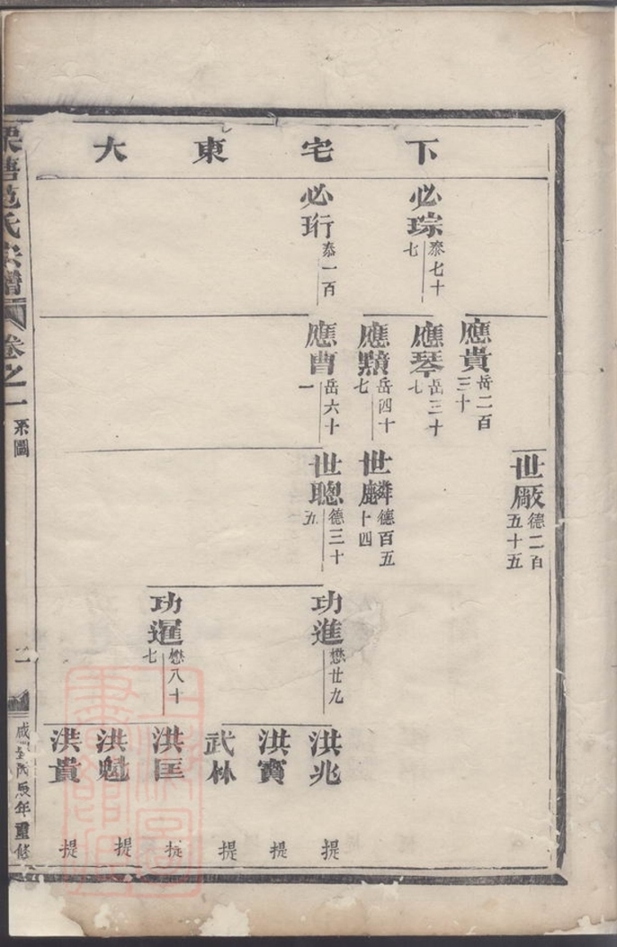 下宅東大
必琮 泰七十七
必珩 泰一百
應貴 岳二百三十
應琴 岳三十七
應顯 岳四十七
應曹 岳六十一
世厰 德二百五十五
世麟 德百五十四
世聰 德三十五
功進 懋廿九
功暹 懋八十七
洪兆 提
洪寶 提
武林 提
洪匡 提
洪魁 提
洪貴 提
范氏宗譜 卷之一 系圖
年重修